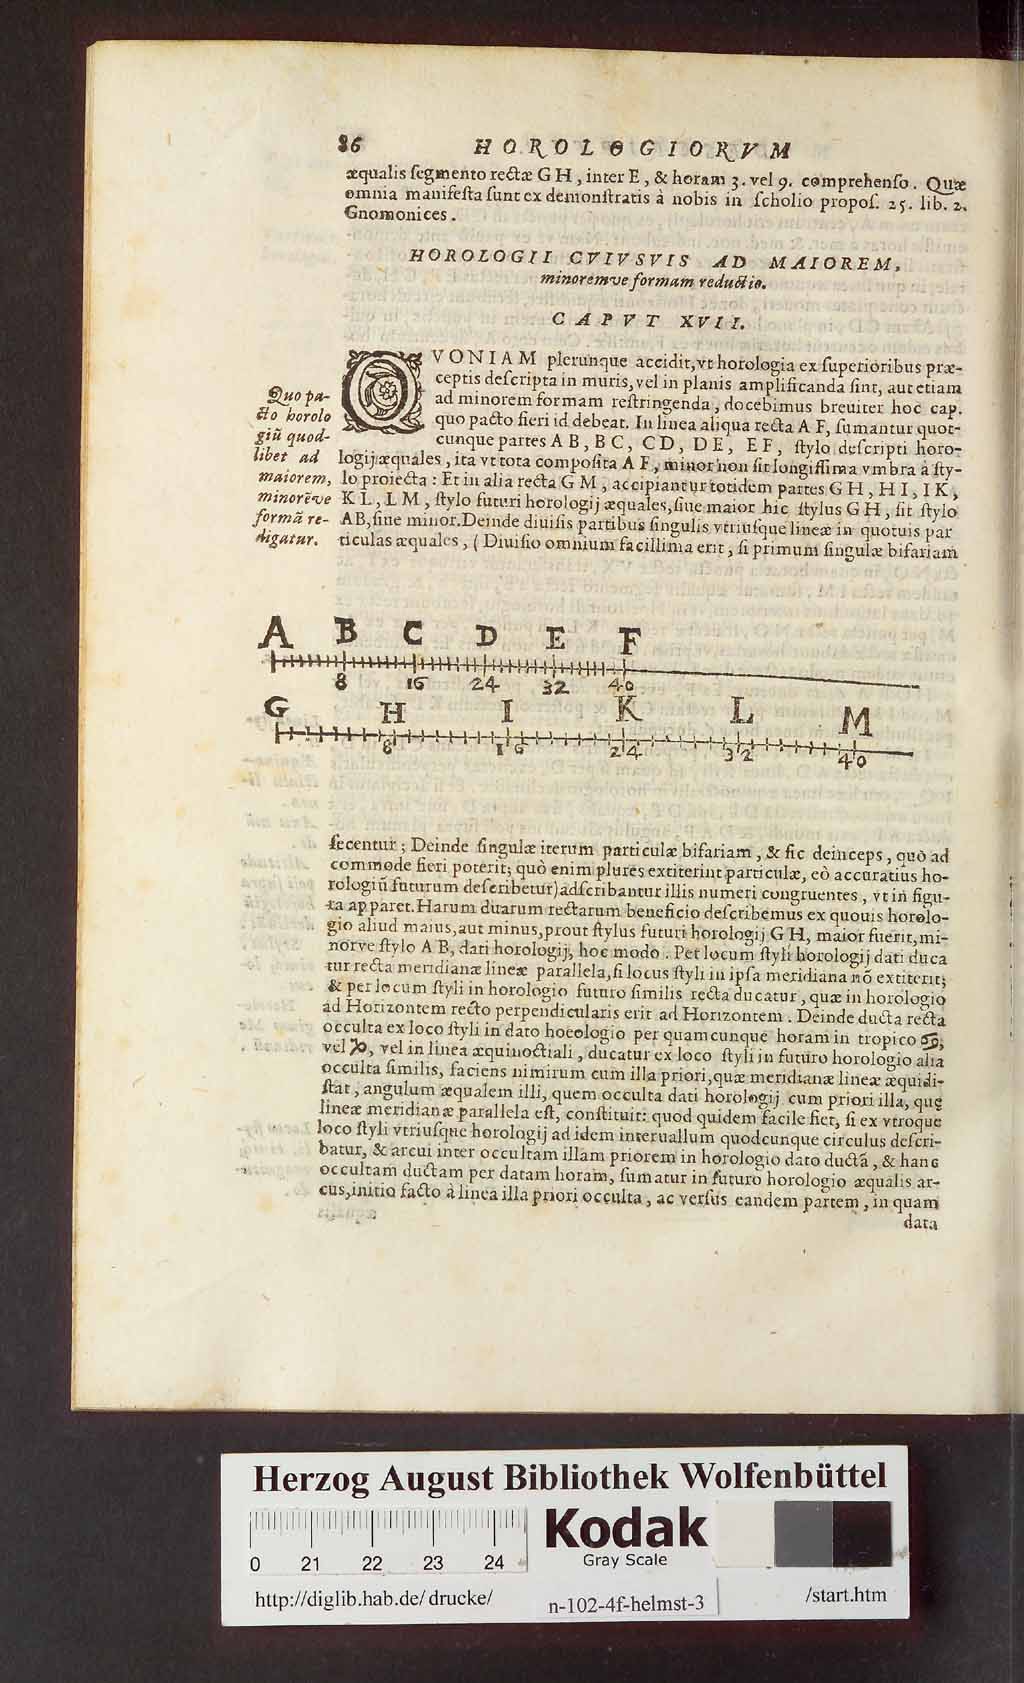 86 HOROLOGIORVM
æqualis ſegmento rectæ G H, inter E, & horam 3. vel 9. comprehenſo. Quæ
omnia manifeſta ſunt ex demonſtratis à nobis in ſcholio propoſ. 25. lib. 2.
Gnomonices.
HOROLOGII CVIVSVIS AD MAIOREM,
minoremve formam reductio.
CAPVT XVII.
QVONIAM plerunque accidit, vt horologia ex ſuperioribus præ-
ceptis deſcripta in muris, vel in planis amplificanda ſint, aut etiam
ad minorem formam reſtringenda, docebimus breuiter hoc cap.
quo pacto fieri id debeat. In linea aliqua recta A F, ſumantur quot-
cunque partes A B, B C, C D, D E, E F, ſtylo deſcripti horo-
logij æquales, ita vt tota compoſita A F, minor non ſit longiſſima vmbra à ſty-
lo proiecta: Et in alia recta G M, accipiantur totidem partes G H, H I, I K,
K L, L M, ſtylo futuri horologij æquales, ſiue maior hic ſtylus G H, ſit ſtylo
AB, ſiue minor. Deinde diuiſis partibus ſingulis vtriuſque lineæ in quotuis par
ticulas æquales, (Diuiſio omnium facillima erit, ſi primum ſingulæ bifariam
Quo pa-
cto horolo
giũ quod-
libet ad
maiorem,
minorẽve
formã re-
digatur.
A B C D E F
8 16 24 32 40
G H I K L M
8 16 24 32 40
ſecentur; Deinde ſingulæ iterum particulæ bifariam, & ſic deinceps, quò ad
commode fieri poterit; quò enim plures extiterint particulæ, eò accuratius ho-
rologiũ futurum deſcribetur) adſcribantur illis numeri congruentes, vt in figu-
ra apparet. Harum duarum rectarum beneficio deſcribemus ex quouis horolo-
gio aliud maius, aut minus, prout ſtylus futuri horologij G H, maior fuerit, mi-
norve ſtylo A B, dati horologij, hoc modo. Per locum ſtyli horologij dati duca
tur recta meridianæ lineæ parallela, ſi locus ſtyli in ipſa meridiana nõ extiterit;
& per locum ſtyli in horologio futuro ſimilis recta ducatur, quæ in horologio
ad Horizontem recto perpendicularis erit ad Horizontem. Deinde ducta recta
occulta ex loco ſtyli in dato horologio per quamcunque horam in tropico ♋,
vel ♑, vel in linea æquinoctiali, ducatur ex loco ſtyli in futuro horologio alia
occulta ſimilis, faciens nimirum cum illa priori, quæ meridianæ lineæ æquidi-
ſtat, angulum æqualem illi, quem occulta dati horologij cum priori illa, quę
lineæ meridianæ parallela eſt, conſtituit: quod quidem facile fiet, ſi ex vtroque
loco ſtyli vtriuſque horologij ad idem interuallum quodcunque circulus deſcri-
batur, & arcui inter occultam illam priorem in horologio dato ductã, & hanc
occultam ductam per datam horam, ſumatur in futuro horologio æqualis ar-
cus, initio facto à linea illa priori occulta, ac verſus eandem partem, in quam
data
Herzog August Bibliothek Wolfenbüttel
0 21 22 23 24
Kodak
Gray Scale
http://diglib.hab.de/drucke/ n-102-4f-helmst-3 /start.htm